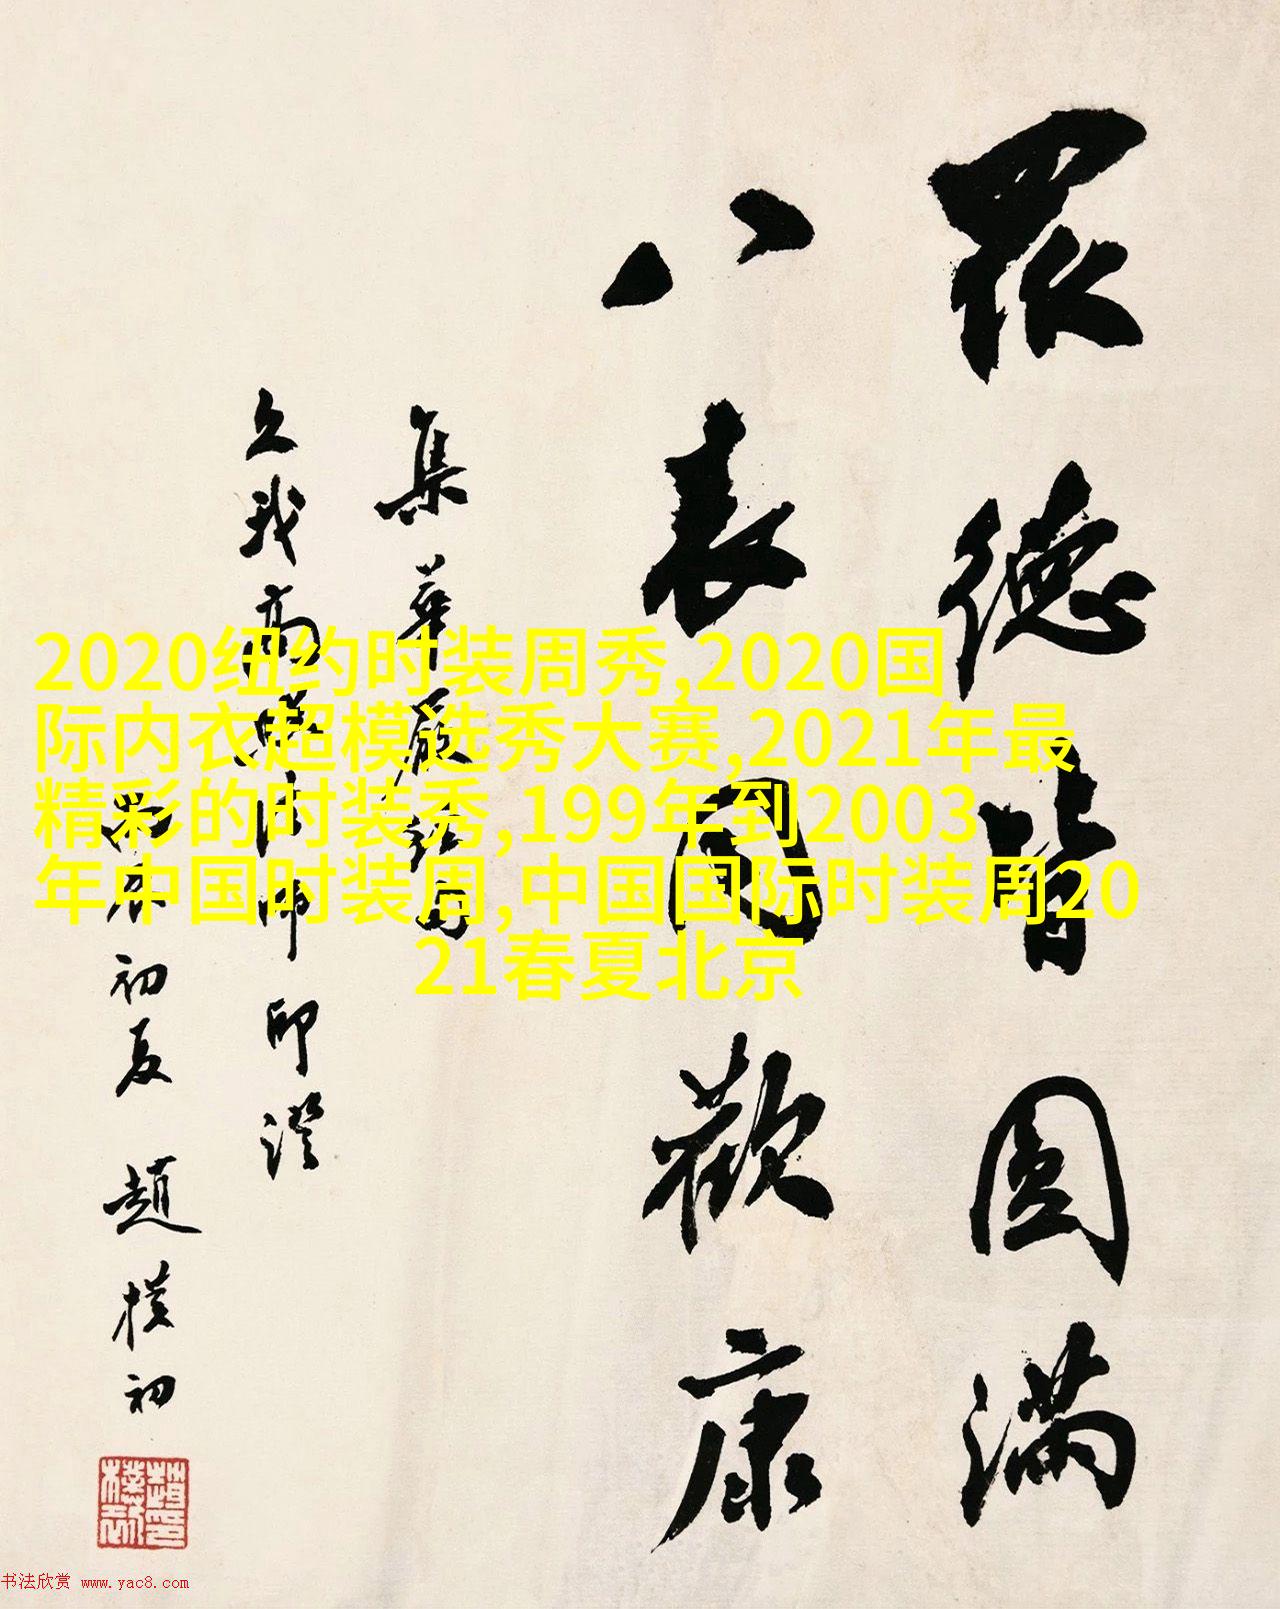 眾德皆圓滿
八表同歡康
集華嚴經句
久我高法師印證
辰初夏 趙樸初
2020纽约时装周秀,2020国
际内衣超模选秀大赛,2021年最
精彩的时装秀,199年到2003
年中国时装周,中国国际时装周20
21春夏北京
书法欣赏 www.yac8.com